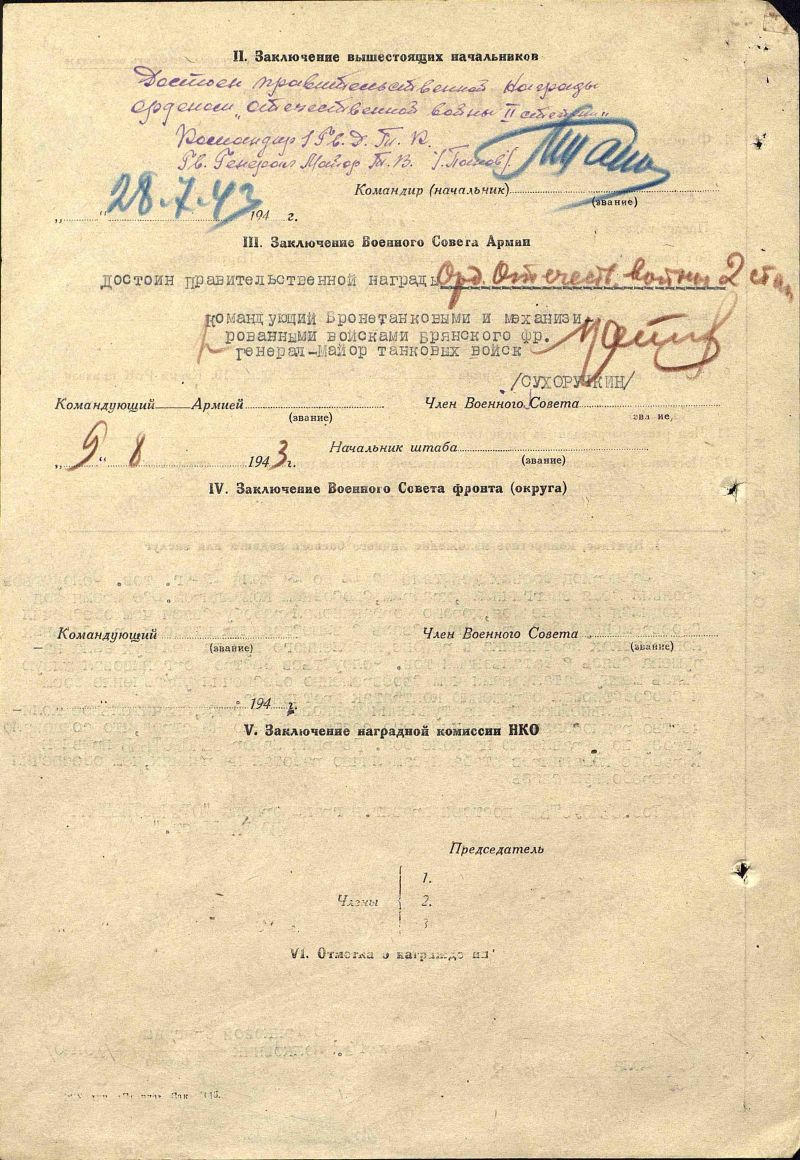 II. Заключение вышестоящих начальников
Достоен правительственной награды
орденом „Отечественной войны II степени"
Командир 1 Гв. Д. Т. К.
Гв. Генерал Майор Т. В. /Попов/
28.7.43
Командир (начальник)
(звание)
„ “ 194 г.
III. Заключение Военного Совета Армии
достоин правительственной награды Орд. Отечеств. войны 2 степ.
командующий Бронетанковыми и механизи
рованными войсками Брянского фр.
генерал-Майор танковых войск
/СУХОРУЧКИН/
Командующий Армией Член Военного Совета
(звание) зва ие,
„9“ 8 1943 г. Начальник штаба
(звание)
IV. Заключение Военного Совета фронта (округа)
Командующий Член Военного Совета
(звание) (звание)
194 г.
V. Заключение наградной комиссии НКО
Председатель
1.
Члены 2.
3
VI. Отметка о награжде ии